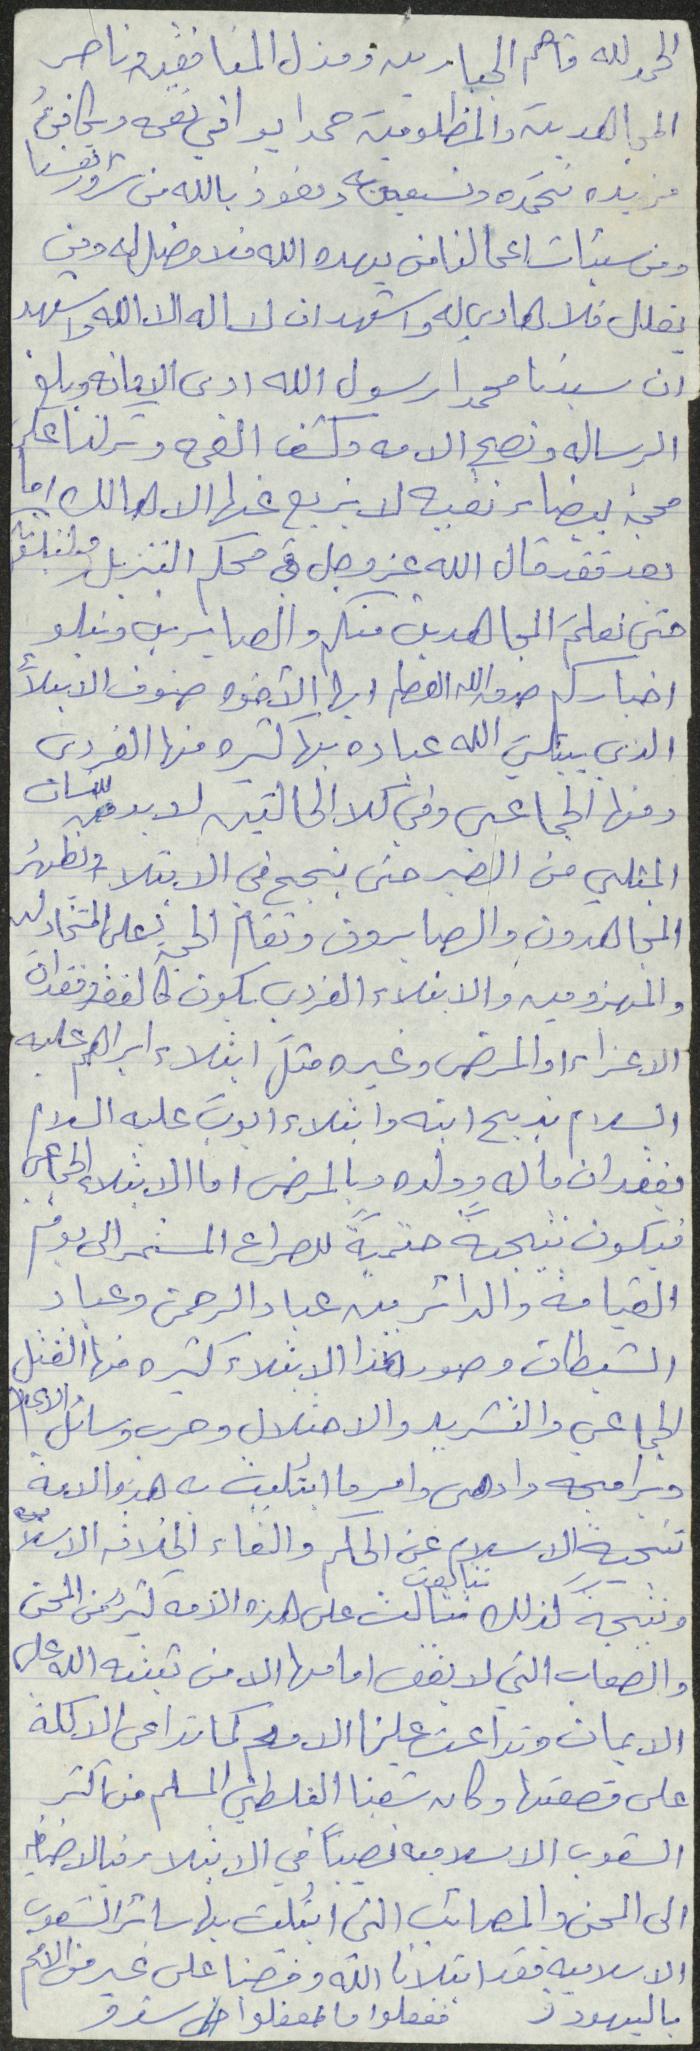 الحمد لله قاصم الجبارين ومذل المنافقين وناصر
المجاهدين والمظلومين حمدا يوافي نعمه ويكافئ
مزيده نحمده ونستعين به ونعوذ بالله من شرور انفسنا
ومن سيئات اعمالنا من يهده الله فلا مضل له ومن
يضلل فلا هادي له واشهد ان لا اله الا الله واشهد
ان سيدنا محمدا رسول الله ادى الامانه وبلغ
الرساله ونصح الامه وكشف الغمه وتركنا على
محجة بيضاء نقيه لا يزيع عنها الا هالك اما
بعد فقد قال الله عز وجل في محكم التنزيل ولنبلونكم
حتى نعلم المجاهدين منكم والصابرين ونبلو
اخباركم صدق الله العظيم ايها الأخوه صنوف الابتلاء
الذي يبتلي الله عباده بها كثيره منها الفردي
ومنها الجماعي وفي كلا الحالتين لا بد للانسان
المبتلي من الصبر حتى ينجح في الابتلاء ويظهر
المجاهدون والصابرون وتقام الحجة على المتخاذلين
والمهزومين والابتلاء الفردي يكون كالفقر وفقدان
الاعزاء والمرض وغيره مثل ابتلاء ابراهيم عليه
السلام بذبح ابنه وابتلاء ايوب عليه السلام
بفقدان ماله وولده وبالمرض اما الابتلاء الجماعي
فيكون نتيجة حتمية للصراع المستمر الى يوم
القيامة والدائر بين عباد الرحمن وعباد
الشيطان وصور هذا الابتلاء كثيره منها القتل
الجماعي والتشريد والاحتلال وحرب وسائل الاعلام
وبرامجه وادهى وامر ما ابتليت به هذه الامة
تنحية الاسلام عن الحكم والغاء الخلافه الاسلاميه
ونتيجة لذلك تتابعت على هذه الأمه كثير من المحن
والصعاب التي لا يقف امامها الا من ثبته الله على
الايمان وتداعت علينا الامم كما تداعى الاكلة
على قصعتها وكان شعبنا الفلسطيني المسلم من اكثر
الشعوب الاسلاميه نصيباً في الابتلاء فبالاضافه
الى المحن والمصائب التي ابتُليت بها سائر الشعوب
الاسلاميه فقد ابتلانا الله وخصنا على غير من الأمم
باليهود ففعلوا ما فعلوا